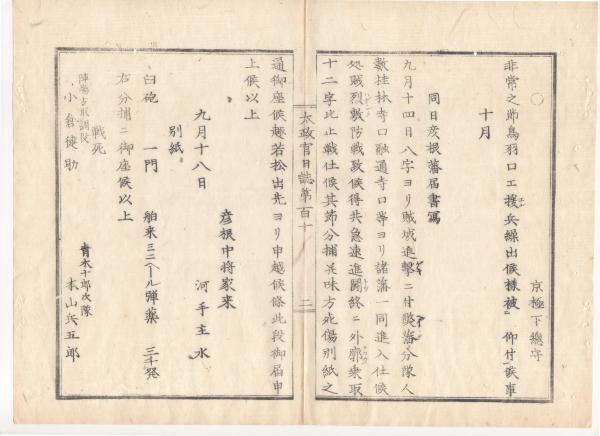 〇
京極下總守
非常之節鳥羽口エ援兵繰出候樣被 仰付候事
十月
同日彦根藩届書寫
九月十四日八字ヨリ賊城進擊ニ付弊藩分隊人
數桂林寺口融通寺口等ヨリ諸藩一同進入仕候
処賊烈敷防戰致候得共急速進鬪終ニ外廓乘取
十二字比止戰仕候其節分捕幷味方死傷別紙之
太政官日誌第百十
二
通御座候趣若松出先ヨリ申越候條此段御届申
上候以上
彦根中將家來
九月十八日 河手主水
別紙
臼砲 一門 舶來ミニヘール彈藥 三千発
右分捕ニ御座候以上
戰死
青木十郎次隊
本山兵五郎
陣場方取調役
小倉徒助